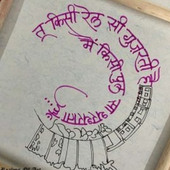 तू किसी रेल सी गुज़रती है
मैं किसी पुल सा थरथराता हूँ...